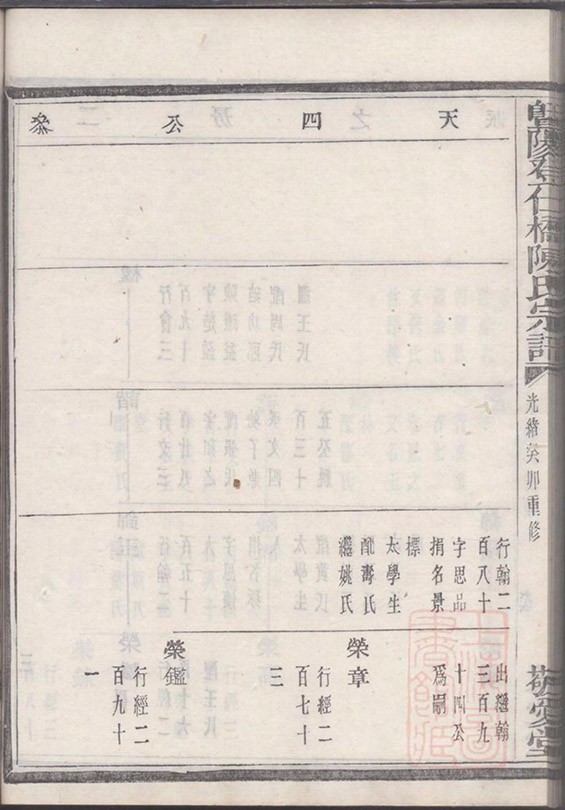 暨陽登仕橋陳氏宗譜
光緒癸卯重修
敬愛堂
天四公㕘
行翰二
百八十
字思品
捐名景
標
太學生
配壽氏
繼姚氏
出繼翰
三百九
十四公
爲嗣
榮章
行經二
百七十
三
榮鑑
行經二
百九十
一